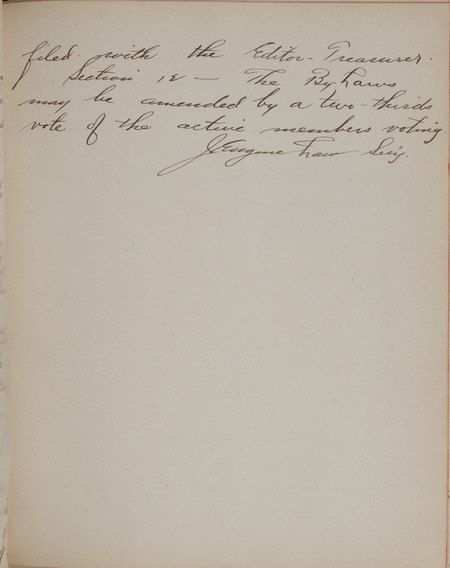 filed with the Editor-Treasurer.
Section 12 — The By Laws
may be amended by a two-thirds
vote of the active members voting.
J Eugene Law Sec'y.